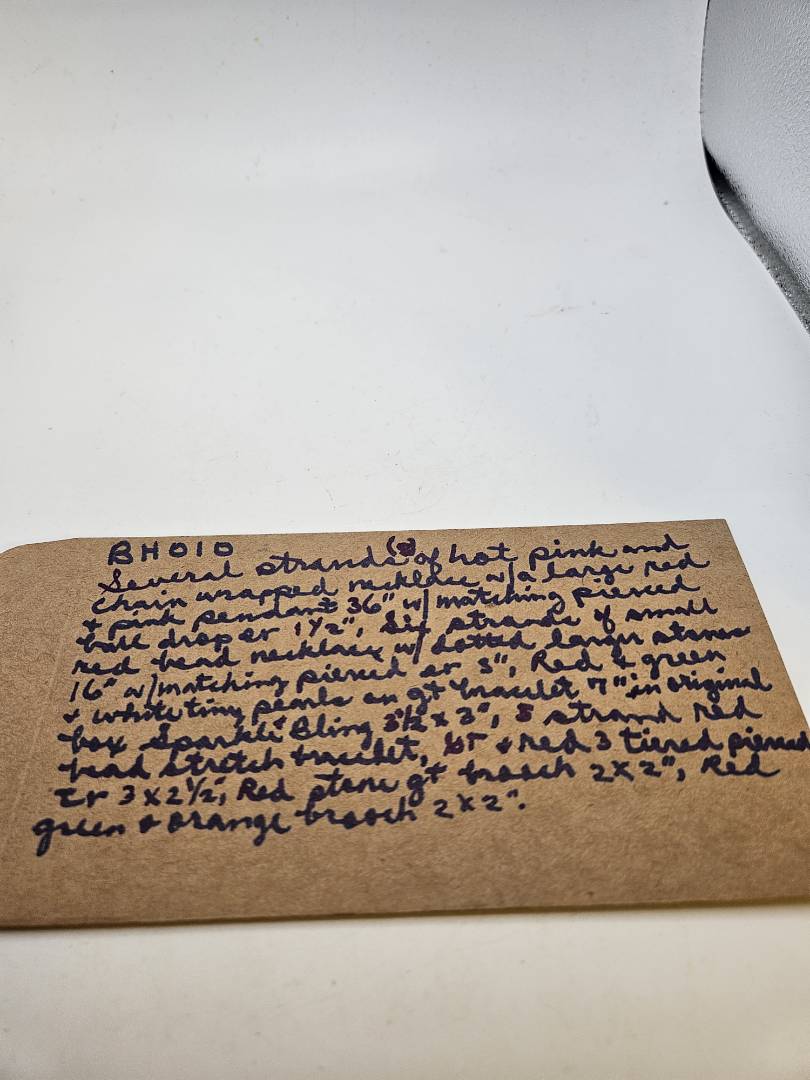 BH010
Several strands (8) of hot pink and
chain wrapped necklace w/a large red
& pink pendant 36" w/ matching pierced
ball drop er 1 1/2", Six strands of small
red bead necklace w/ dotted larger stones
16" w/matching pierced er 3", Red & green
& white tiny pearls on gt bracelet 7" in original
box Sparkli Bling 3 1/2 x 3", 5 strand red
bead stretch bracelet, & red 3 tiered pierced
er 3 x 2 1/2", Red stone gt brooch 2 x 2", Red
green & orange brooch 2 x 2".